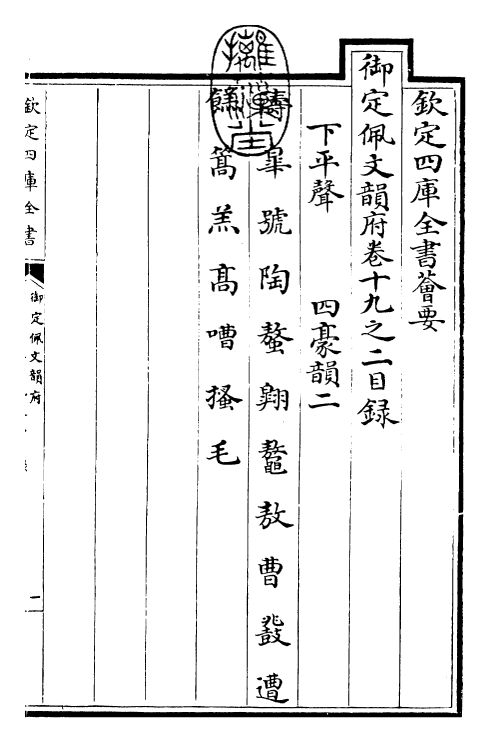 欽定四庫全書薈要
御定佩文韻府卷十九之二目録
下平聲 四豪韻二
皐號陶螯翺鼇敖曹鼛遭
篙羔髙嘈搔毛
摛藻堂
欽定四庫全書
御定佩文韻府